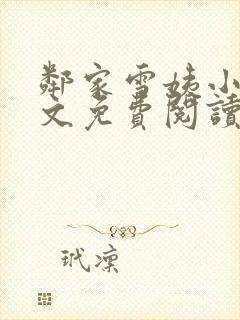 鄰家雪姨小
文免費閱讀
玳凜